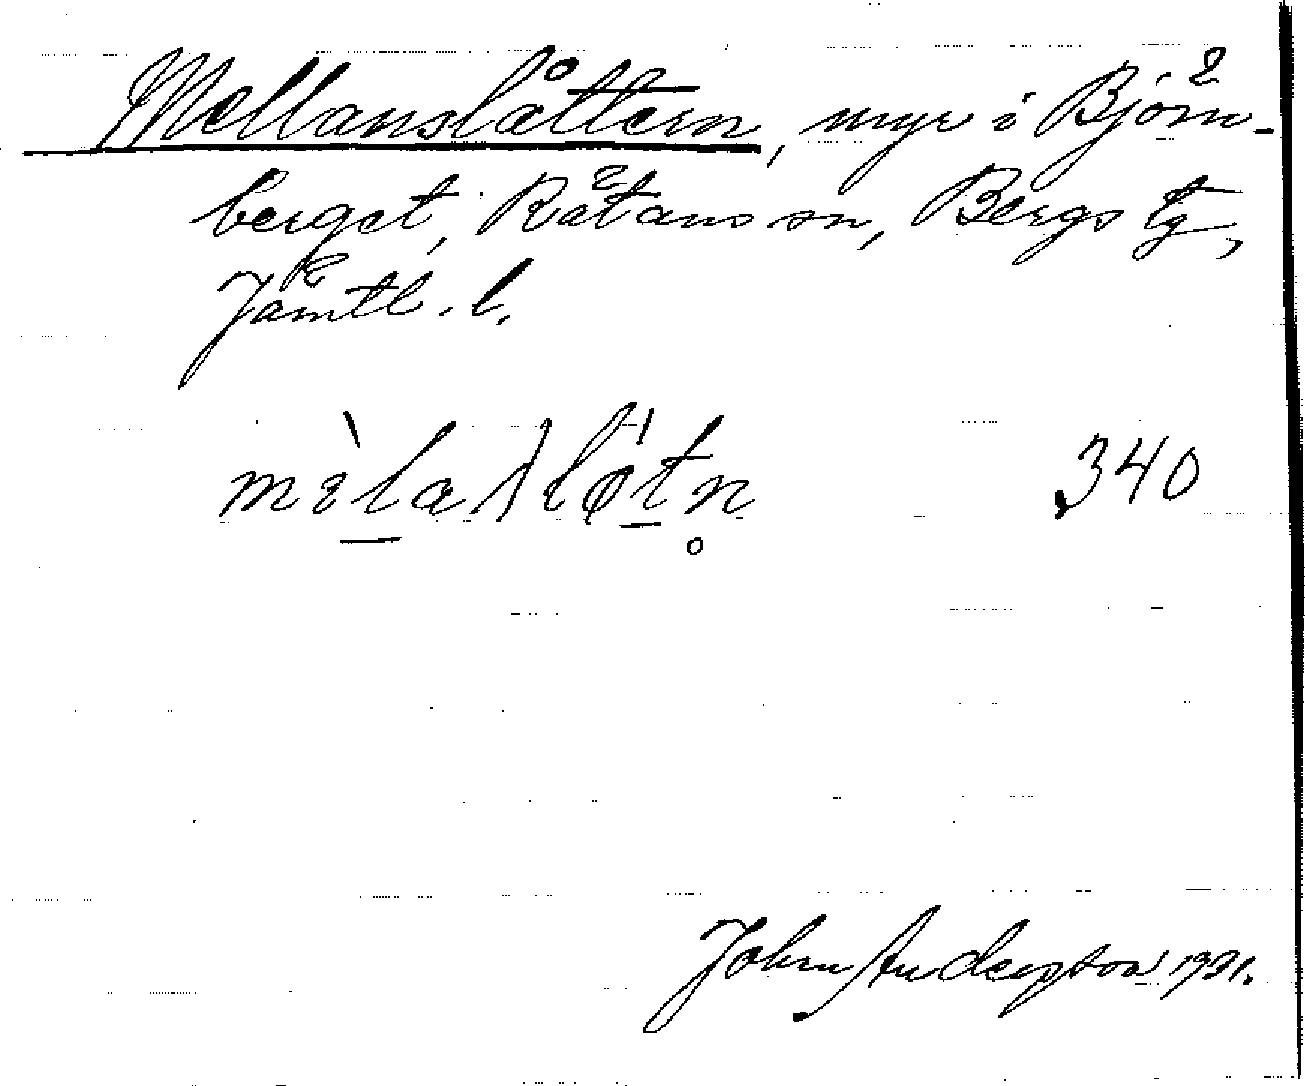 Mellanslåttern, myr i Björn-
berget, Rätans sn, Bergs tg,
Jämtl. l.
340
John Anderson 1931.